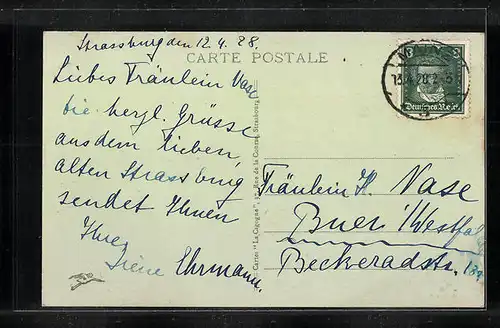 Strassburg den 12. 4. 28.
CARTE POSTALE
Liebes Fräulein Vase
die herzl. Grüsse
aus dem lieben,
alten Strassburg
sendet Ihnen
Ihre
Irene Ehrmann.
Cartes "La Cigogne", 37, Rue de la Course, Strasbourg
3 3
Deutsches Reich
13.4.28.
Fräulein H. Vase
Buer i/Westfal
Beckeradstr.